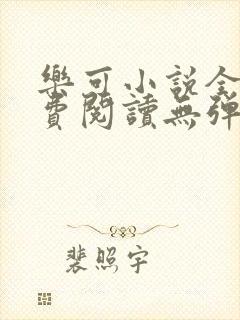 樂可小說全
費閱讀無彈
裴照宇